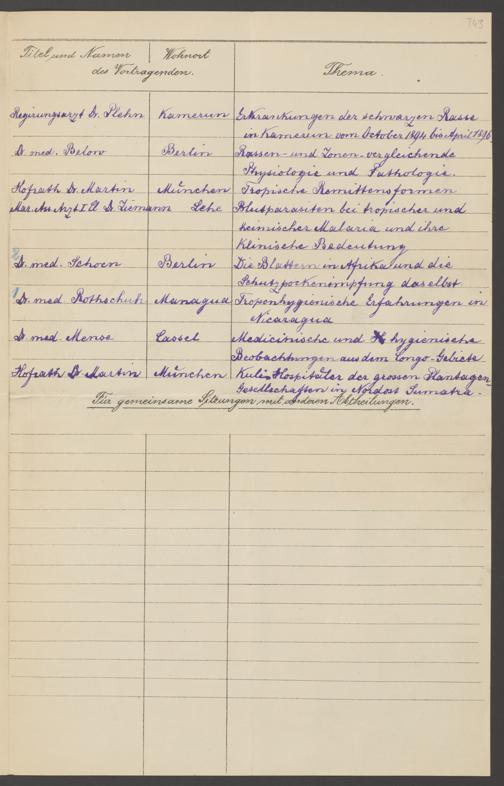 743
Titel und Namen des Vortragenden. | Wohnort | Thema.
Regirungsarzt Dr. Plehn | Kamerun | Erkrankungen der schwarzen Rasse
in Kamerun vom October 1894 bis April 1896.
Dr. med. Below | Berlin | Rassen- und Zonen-vergleichende
Physiologie und Pathologie.
Hofrath Dr. Martin | München | Tropische Remittensformen
Mar. Ass. Arzt I Cl. Dr. Ziemann | Lehe | Blutparasiten bei tropischer und
heimischer Malaria und ihre
klinische Bedeutung
2
Dr. med. Schoen | Berlin | Die Blattern in Afrika und die
Schutzpockenimpfung daselbst
1
Dr. med Rothschuh | Managua | Tropenhygienische Erfahrungen in
Nicaragua
Dr. med. Mense | Cassel | Medicinische und hygienische
Beobachtungen aus dem Congo-Gebiete.
Hofrath Dr Martin | München | Kulis Hospitäler der grossen Plantagen
Gesellschaften in Nordost Sumatra.
Für gemeinsame Sitzungen mit anderen Abtheilungen.